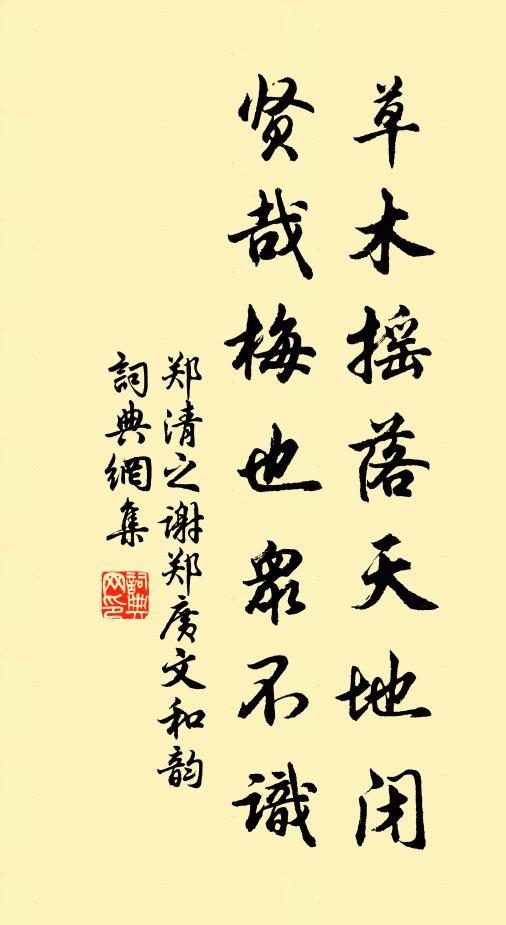 草木摇落天地闭
贤哉梅也众不識
郑清之谢郑廣文和韵
詞典網集
詞典网印